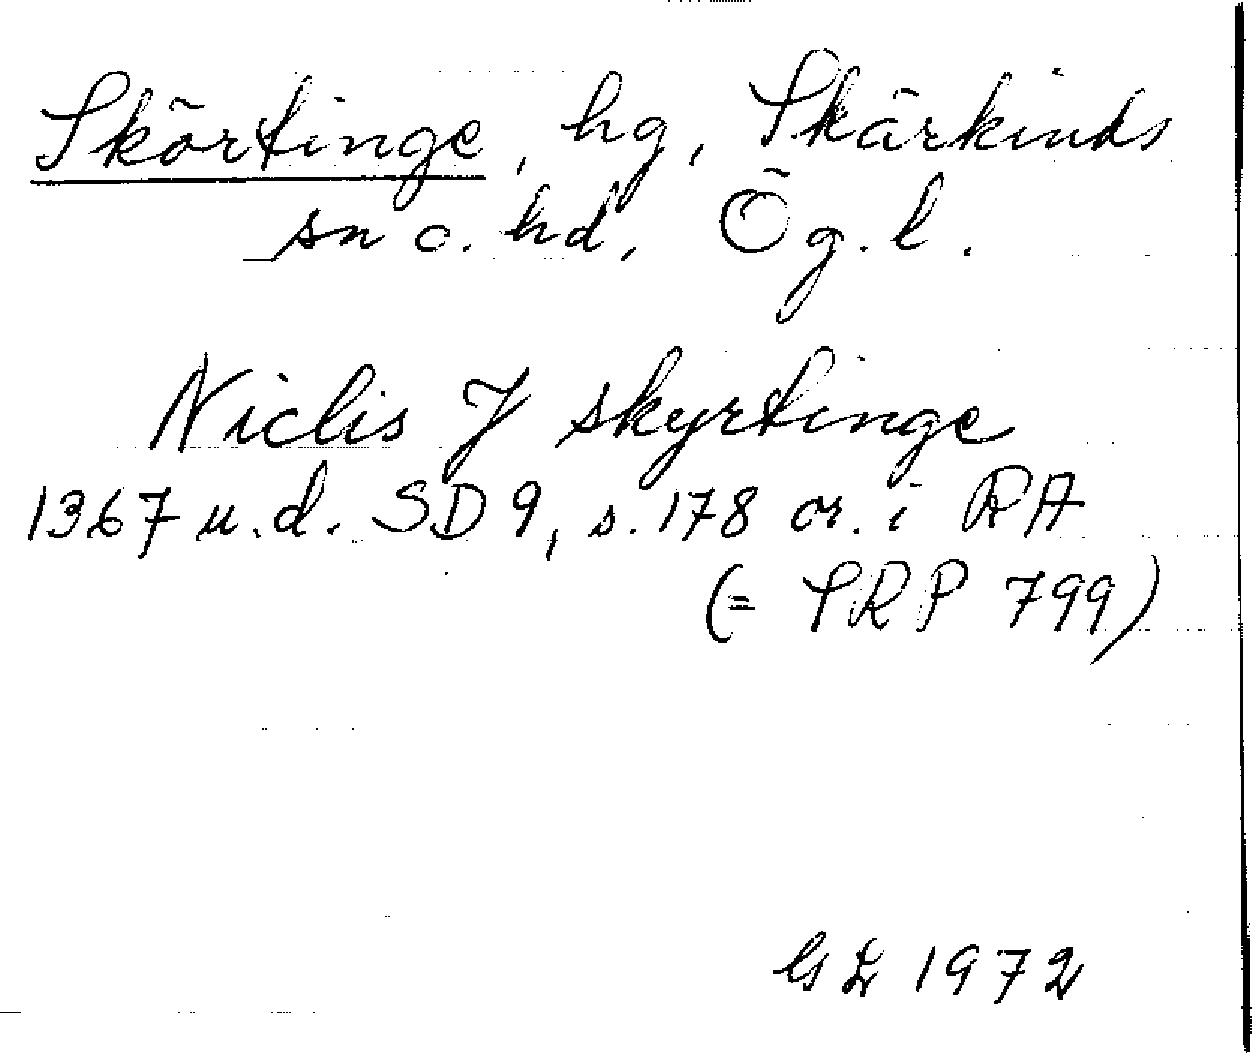 Skörtinge, hg, Skärkinds
sn o. hd, Ög.l.
Niclis J skyrtinge
1367 u.d. SD 9, s. 178 or. i RA
(= SRP 799)
1972